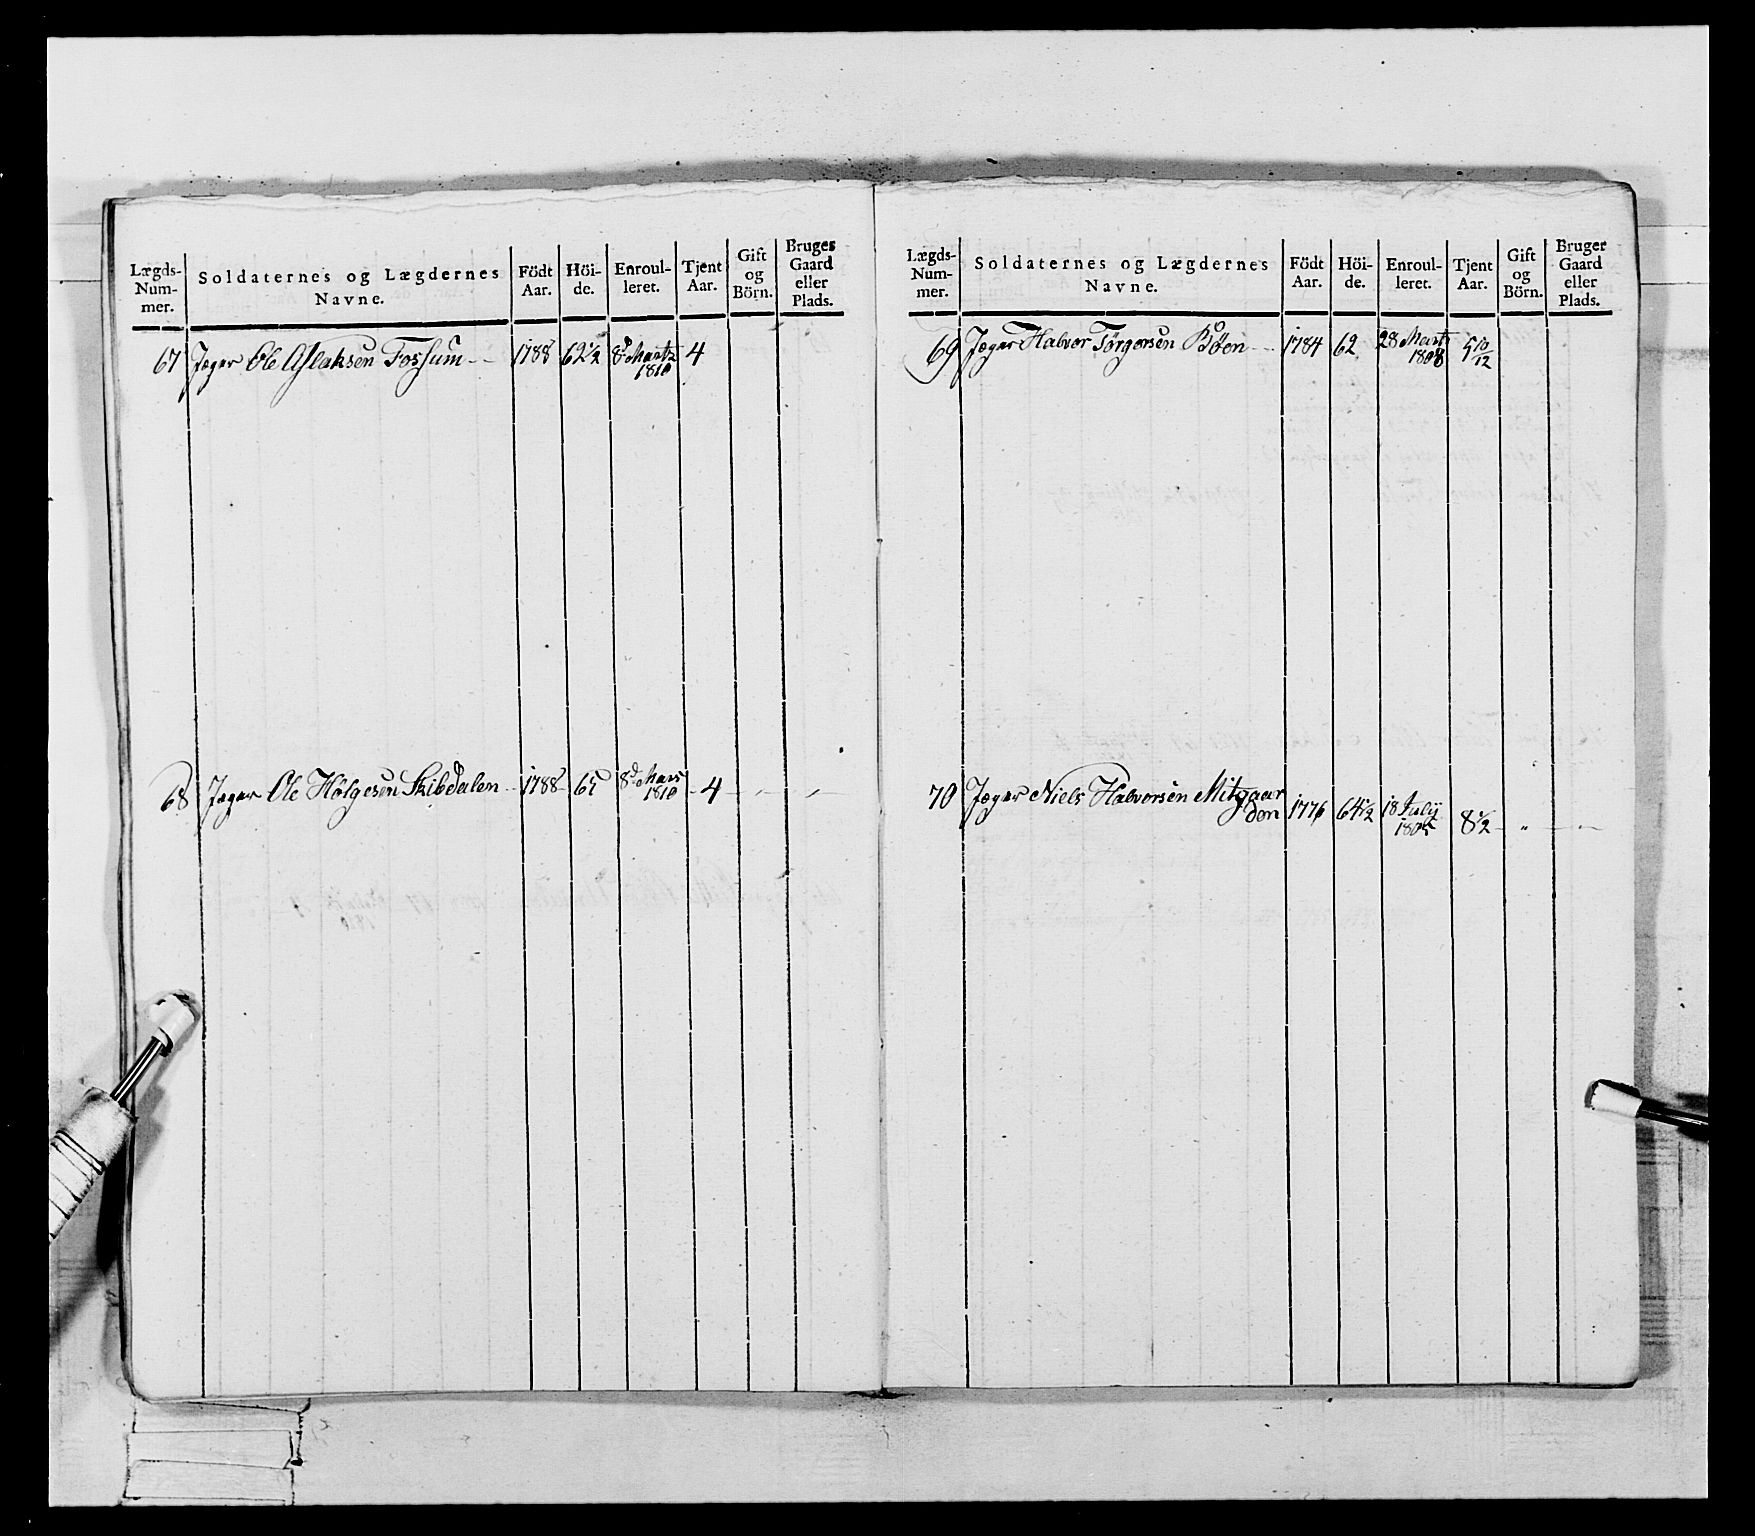 Lægds-Num-mer. Soldaternes og Lægdernes Navne. Födt Aar. Höi-de. Enroul-leret. Tjent Aar. Gift og Börn. Bruger Gaard eller Plads.
67 Jæger Ole Aslaksen Fossum - - 1788 62 1/2 8d Martz 1810 4
68 Jæger Ole Hølgesen Skibdalen - 1788 65 8d Mars 1810 - 4 - " - " -
Lægds-Num-mer. Soldaternes og Lægdernes Navne. Födt Aar. Höi-de. Enroul-leret. Tjent Aar. Gift og Börn. Bruger Gaard eller Plads.
69 Jæger Halvor Törgersen Böen - - 1784 62 28 Martz 1808 5 10/12
70 Jæger Niels Halvorsen Mitgaar
den 1776 64 1/2 18 July 1805 8 1/2 - " - " -